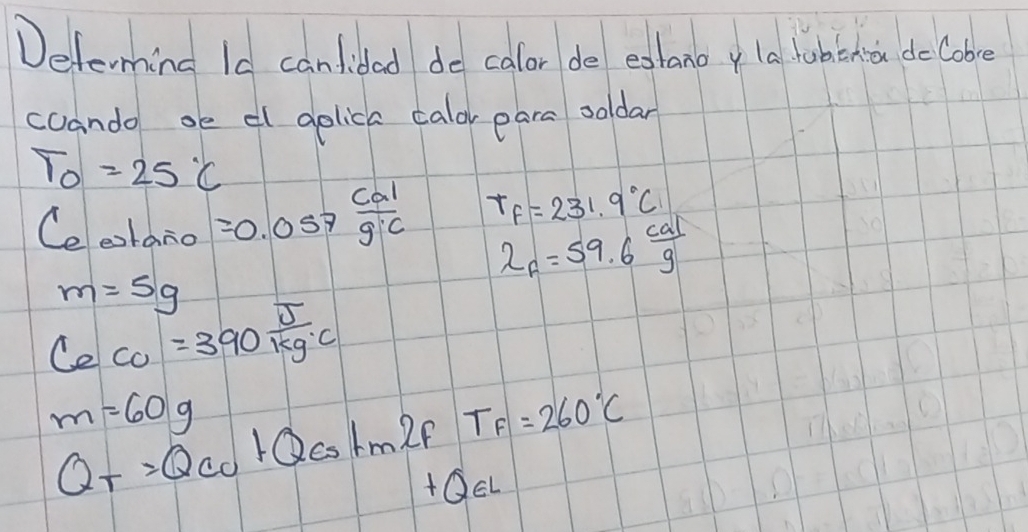 Determina la cantidad de calor de estaño y la tubería de Cobre
cuando se el aplica calor para soldar
T₀ = 25 °C
Ce estaño = 0.057 cal/g°C
T_F = 231.9°C
λ_f = 59.6 cal/g
m = 5g
Ce CU = 390 J/kg°C
m = 60 g
T_F = 260°C
Q_T = Q_CU + Q_ES + mλ_F + Q_EL